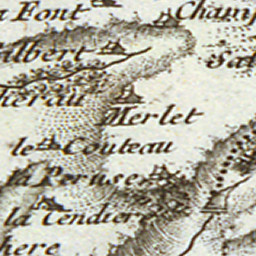 Font
Champ
albert
Sal
herau
Merlet
le Couteau
la Peruse
la Tendiere
here